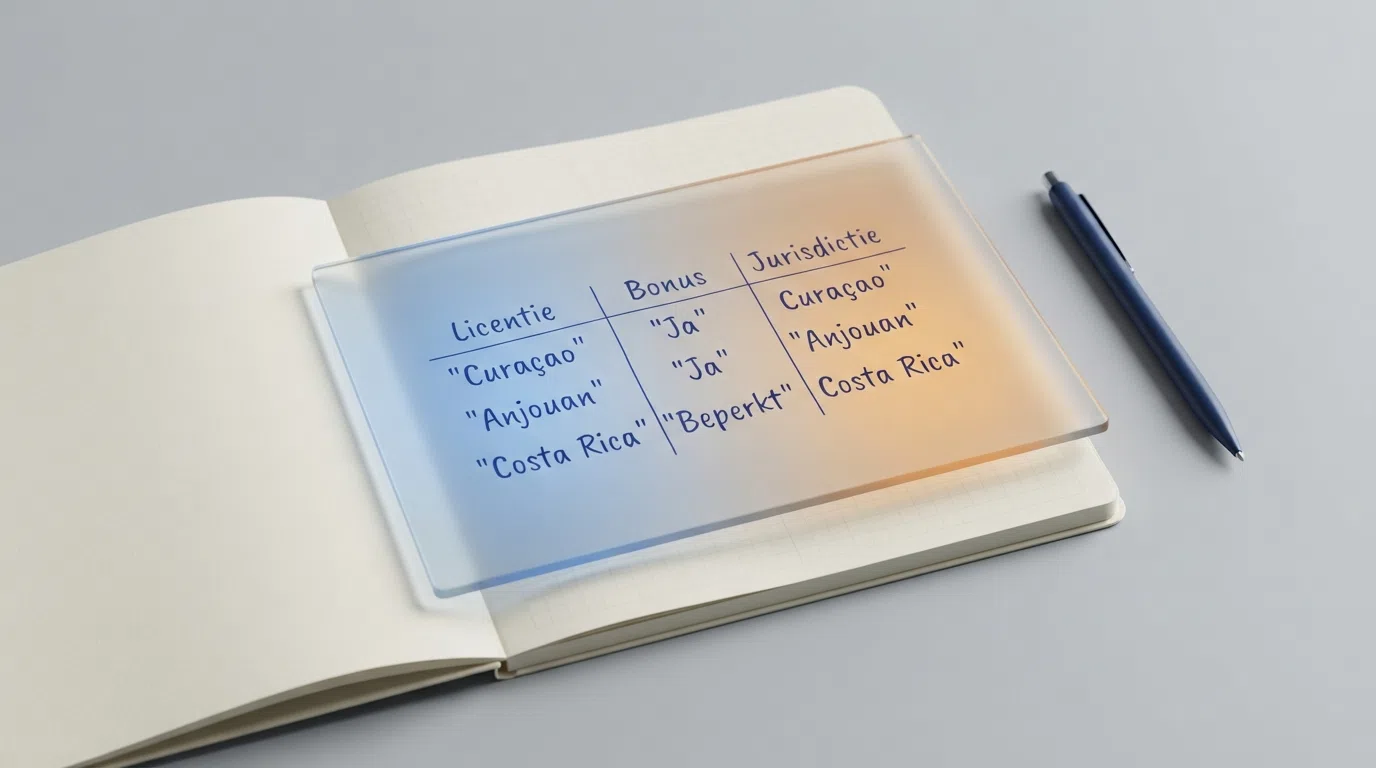 Licentie Bonus Jurisdictie
"Curaçao" "Ja" Curaçao"
"Anjouan" "Ja" "Anjouan"
"Costa Rica" "Beperkt" Costa Rica"